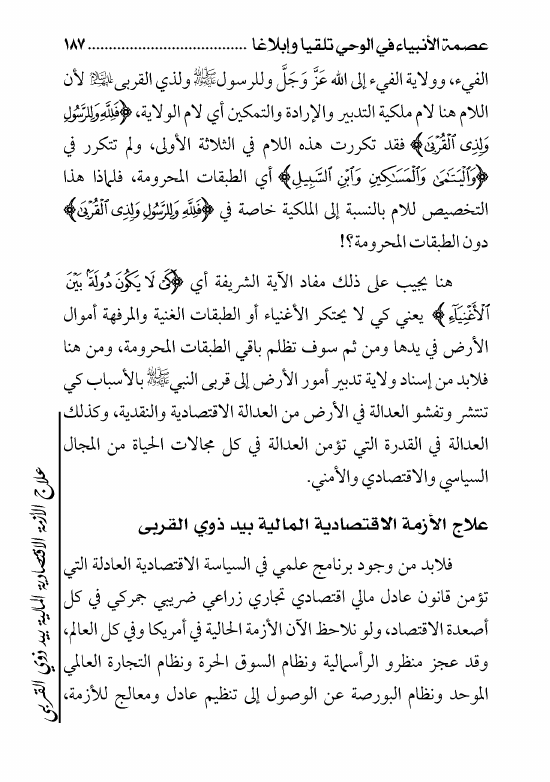 عصمة الأنبياء في الوحي تلقيا وإبلاغا ...................................... ١٨٧
الفيء، وولاية الفيء إلى الله عَزَّ وَجَلَّ وللرسول ﷺ ولذي القربى لأن
اللام هنا لام ملكية التدبير والإرادة والتمكين أي لام الولاية، ﴿فَلِلَّهِ وَلِلرَّسُولِ
وَلِذِى ٱلْقُرْبَىٰ﴾ فقد تكررت هذه اللام في الثلاثة الأولى، ولم تتكرر في
﴿وَٱلْيَتَـٰمَىٰ وَٱلْمَسَـٰكِينِ وَٱبْنِ ٱلسَّبِيلِ﴾ أي الطبقات المحرومة، فلماذا هذا
التخصيص للام بالنسبة إلى الملكية خاصة في ﴿فَلِلَّهِ وَلِلرَّسُولِ وَلِذِى ٱلْقُرْبَىٰ﴾
دون الطبقات المحرومة؟!
هنا يجيب على ذلك مفاد الآية الشريفة أي ﴿كَىْ لَا يَكُونَ دُولَةًۢ بَيْنَ
ٱلْأَغْنِيَآءِ﴾ يعني كي لا يحتكر الأغنياء أو الطبقات الغنية والمرفهة أموال
الأرض في يدها ومن ثم سوف تظلم باقي الطبقات المحرومة، ومن هنا
فلابد من إسناد ولاية تدبير أمور الأرض إلى قربى النبي ﷺ بالأسباب كي
تنتشر وتفشو العدالة في الأرض من العدالة الاقتصادية والنقدية، وكذلك
العدالة في القدرة التي تؤمن العدالة في كل مجالات الحياة من المجال
السياسي والاقتصادي والأمني.
علاج الأزمة الاقتصادية المالية بيد ذوي القربى
فلابد من وجود برنامج علمي في السياسة الاقتصادية العادلة التي
تؤمن قانون عادل مالي اقتصادي تجاري زراعي ضريبي جمركي في كل
أصعدة الاقتصاد، ولو نلاحظ الآن الأزمة الحالية في أمريكا وفي كل العالم،
وقد عجز منظرو الرأسمالية ونظام السوق الحرة ونظام التجارة العالمي
الموحد ونظام البورصة عن الوصول إلى تنظيم عادل ومعالج للأزمة،
علاج الأزمة الاقتصادية المالية بيد ذوي القربى